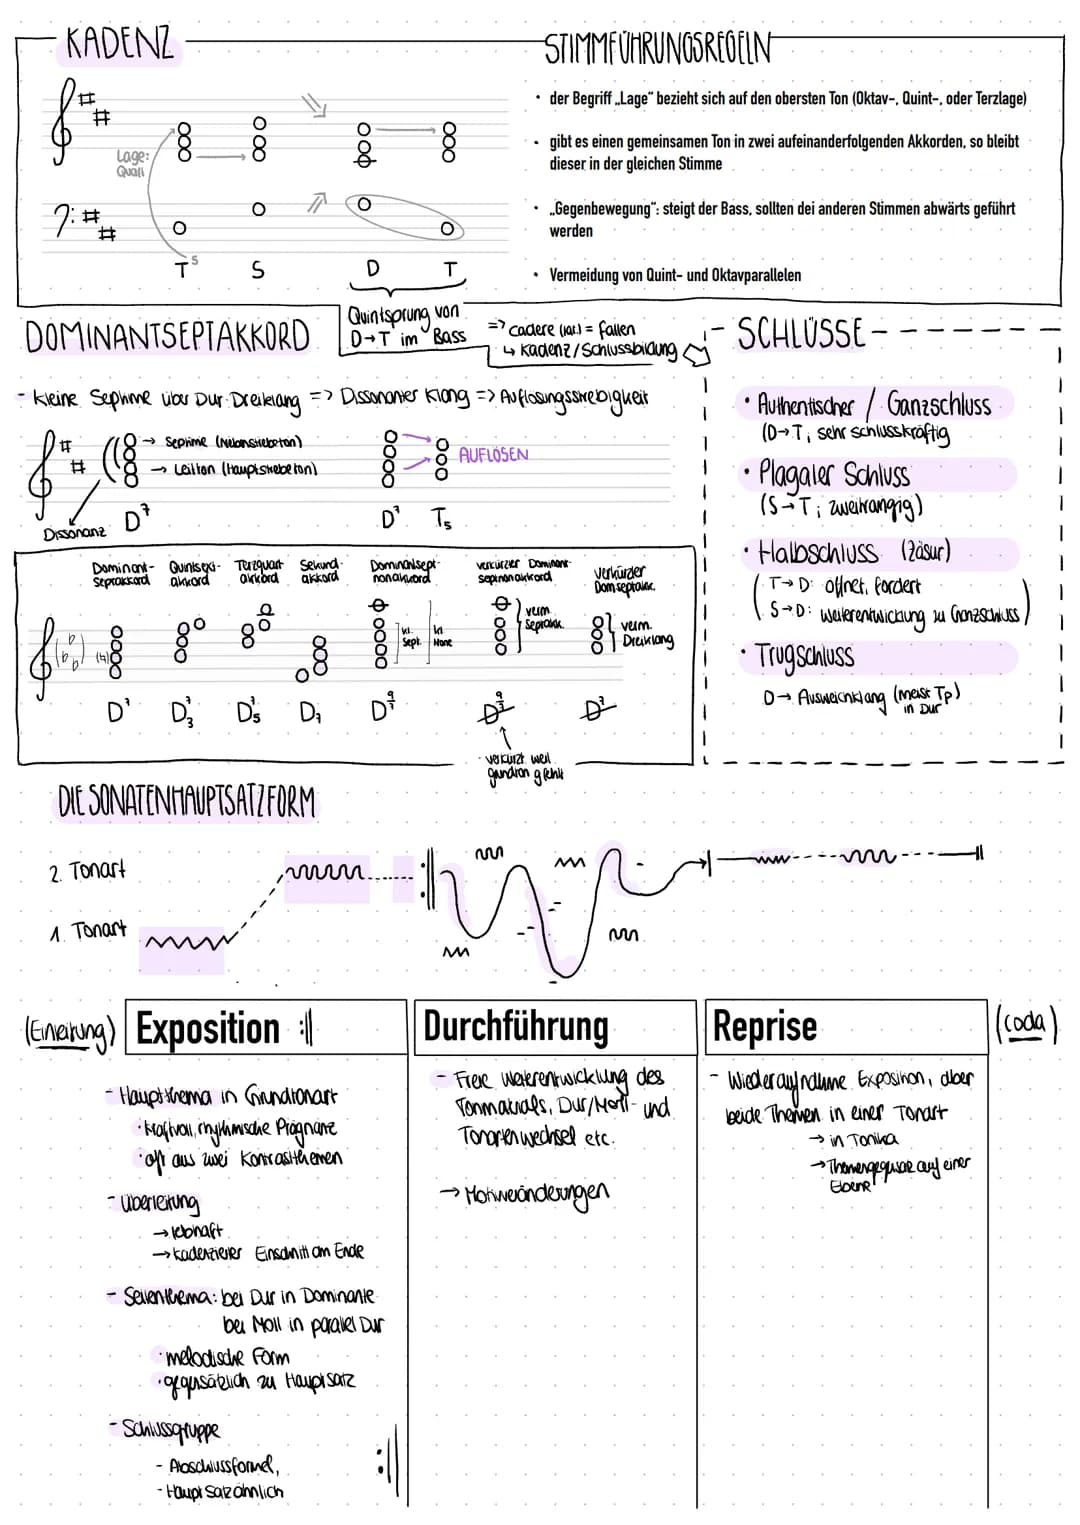 KADENZ
STIMMFÜHRUNGSREGELN
• der Begriff „Lage" bezieht sich auf den obersten Ton (Oktav-, Quint-, oder Terzlage)
• gibt es einen gemeinsamen Ton in zwei aufeinanderfolgenden Akkorden, so bleibt
dieser in der gleichen Stimme
• „Gegenbewegung": steigt der Bass, sollten dei anderen Stimmen abwärts geführt
werden
• Vermeidung von Quint- und Oktavparallelen
Lage:
T⁵ S D T
Quintsprung von
D→T im Bass
=> cadere (lat.) = fallen
↳ Kadenz/Schlussbildung
DOMINANTSEPTAKKORD
- kleine Septime über Dur-Dreiklang => Dissonanter Klang => Auflösungsstrebigkeit
→ Septime (Nebenstrebeton)
→ Leitton (Hauptstrebeton)
AUFLÖSEN
Dissonanz
D⁷ D⁷ T₅
Dominant-
Septakkord
Quintsext-
akkord
Terzquart-
akkord
Sekund-
akkord
Dominantsept-
nonakkord
verkürzter Dominant-
septnonakkord
Verkürzter
Domseptakk.
kl.
Sept.
kl
None
verm.
Septakk.
verm.
Dreiklang
D⁷ D⁷₃ D⁷₅ D₇ D⁹₇ D⁹₇ D⁷
verkürzt weil
grundton fehlt
SCHLÜSSE
• Authentischer / Ganzschluss
(D→T; sehr schlusskräftig
• Plagaler Schluss
(S→T; zweitrangig)
• Halbschluss (Zäsur)
(T→D: öffnet, fordert
S→D: Weiterentwicklung zu Ganzschluss)
• Trugschluss
D→ Ausweichklang (meist Tp)
in Dur
DIE SONATENHAUPTSATZFORM
2. Tonart
1. Tonart
(Einleitung)
Exposition :||
Durchführung
Reprise
(coda)
- Hauptthema in Grundtonart
· kraftvoll, rhythmische Prägnanz
· oft aus zwei Kontrastthemen
- Überleitung
→ lebhaft
→ kadenzierter Einschnitt am Ende
- Seitenthema: bei Dur in Dominante
bei Moll in parallel Dur
· melodische Form
· gegensätzlich zu Hauptsatz
- Schlussgruppe
- Abschlussformel,
- Hauptsatzähnlich
- Freie Weiterentwicklung des
Tonmaterials, Dur/Moll- und
Tonartenwechsel etc.
→ Motivveränderungen
- Wiederaufnahme Exposition, aber
beide Themen in einer Tonart
→ in Tonika
→ auf einer
Ebene